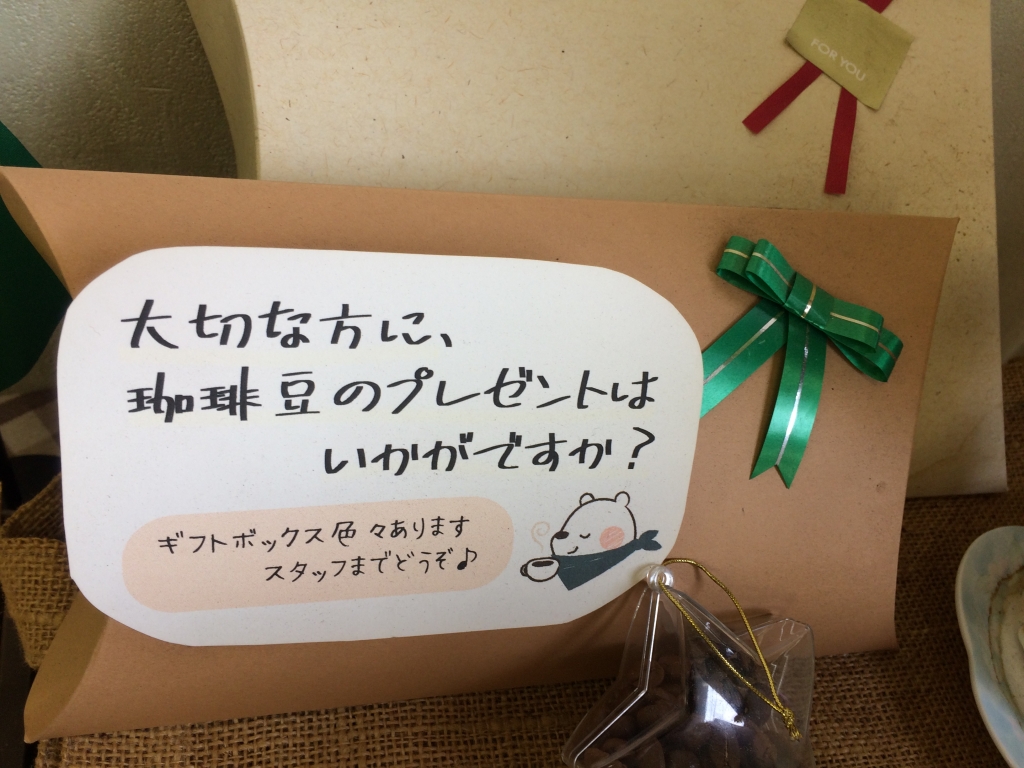 FOR YOU
大切な方に、
珈琲豆のプレゼントは
いかがですか?
ギフトボックス色々あります
スタッフまでどうぞ♪